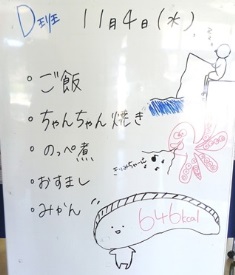 D班 11月4日(水)
・ご飯
・ちゃんちゃん焼き
・のっぺ煮
・おすまし
・みかん
646kcal